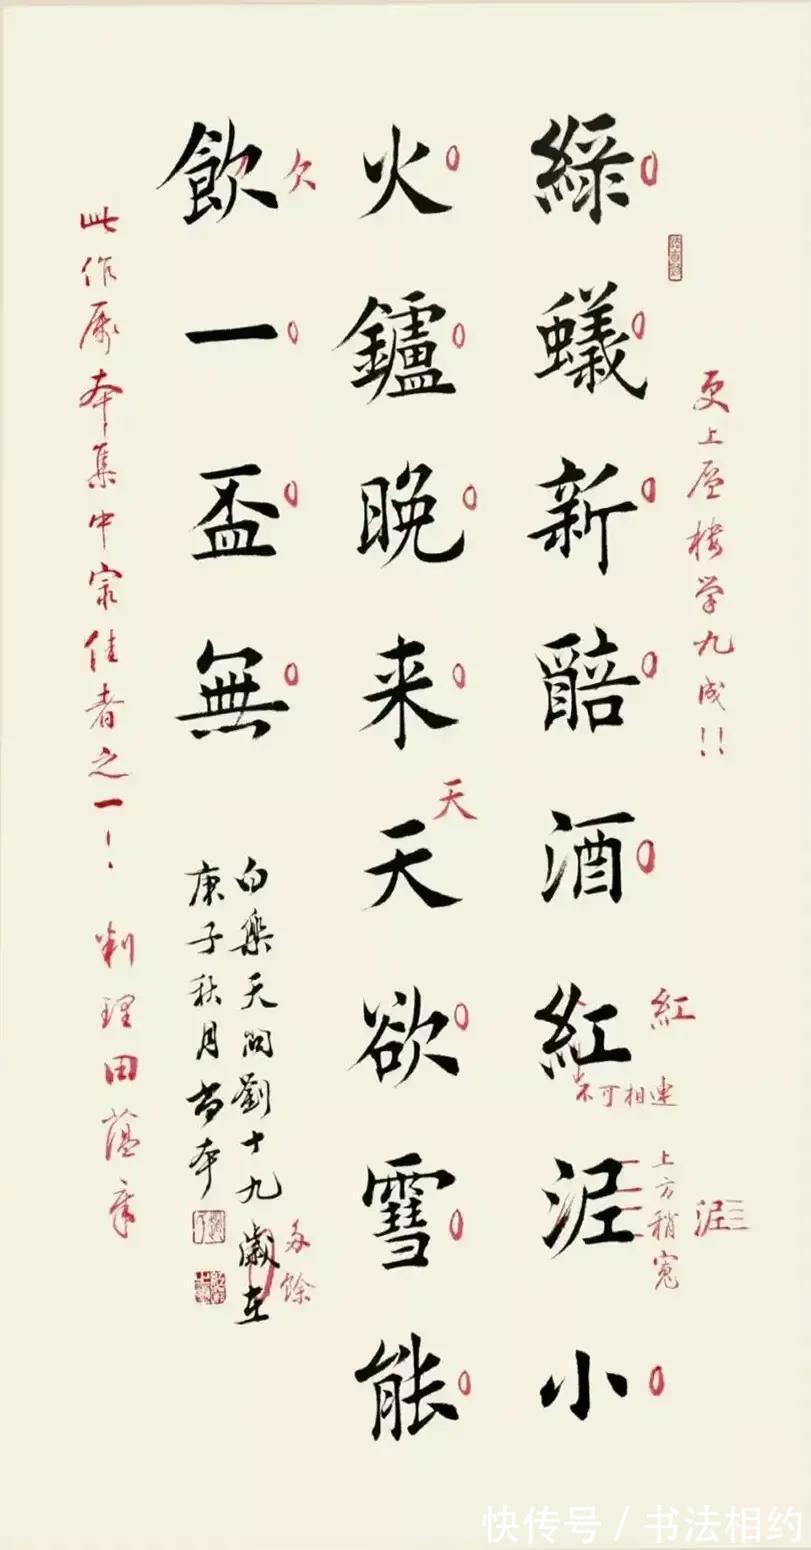 更上层楼学九成！！
綠蟻新醅酒紅泥小
紅
不可相連
上方稍寬
泥
火鑪晚来天欲雪能
天
飲一盃無
欠
白樂天問劉十九歲在
多餘
庚子秋月
此作属本集中最佳者之一！
田蕴章
快传号 / 书法相约